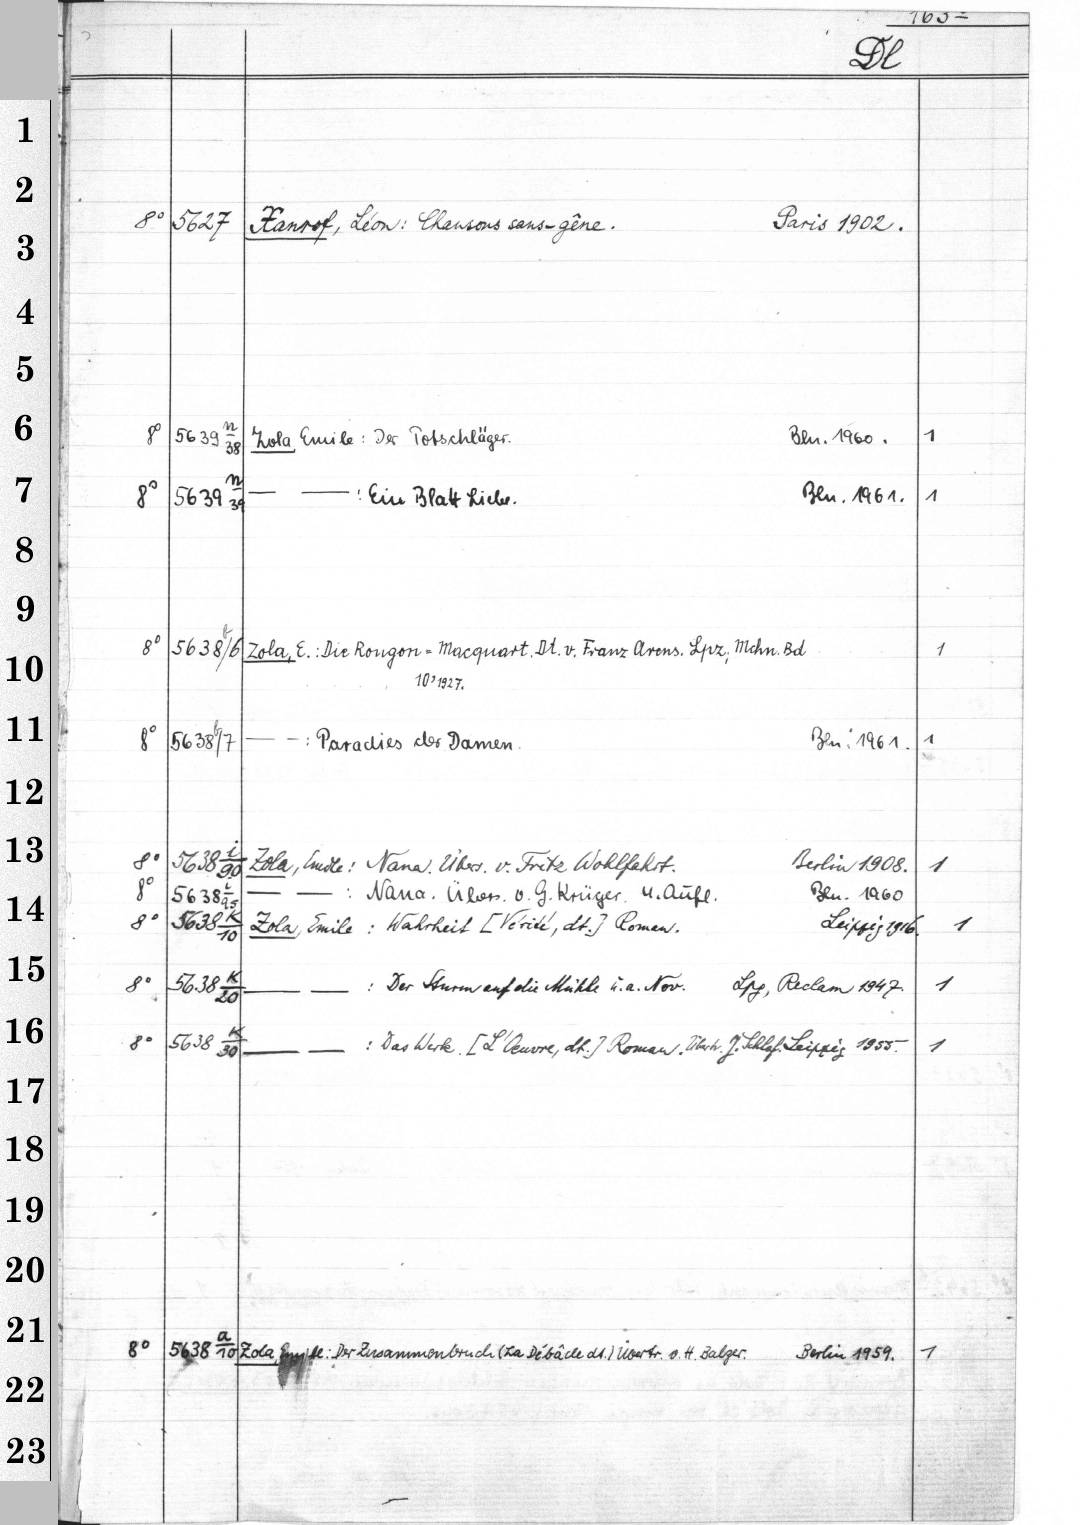 163=
Dl
1
2
8° 5627 Xanrof, Léon: Chansons sans-gêne. Paris 1902.
3
4
5
6
8° 5639 n/38 Zola Emile: Der Totschläger. Bln. 1960. 1
7
8° 5639 n/39 — — : Ein Blatt Liebe. Bln. 1961. 1
8
9
8° 5638 b/6 Zola, E.: Die Rougon=Macquart. Dt. v. Franz Arens. Lpz, Mchn. Bd 1
10
1927.
11
8° 5638 b/7 — – : Paradies der Damen. Bln. 1961. 1
12
13
8° 5638 i/90 Zola, Emile: Nana. Übers. v. Fritz Wohlfahrt. Berlin 1908. 1
8° 5638 i/95 — — : Nana. Übers. v. G. Krüger. 4. Aufl. Bln. 1960
14
8° 5638 K/10 Zola, Emile : Wahrheit [Vérité, dt.] Roman. Leipzig 1916. 1
15
8° 5638 K/20 — — : Der Sturm auf die Mühle u.a. Nov. Lpg, Reclam 1947. 1
16
8° 5638 K/30 — — : Das Werk. [L'Oeuvre, dt.] Roman. Übertr. J. Schlaf. Leipzig 1955. 1
17
18
19
20
21
8° 5638 a/10 Zola, Emile: Der Zusammenbruch (La Débâcle dt.) Übertr. v. H. Balzer. Berlin 1959. 1
22
23